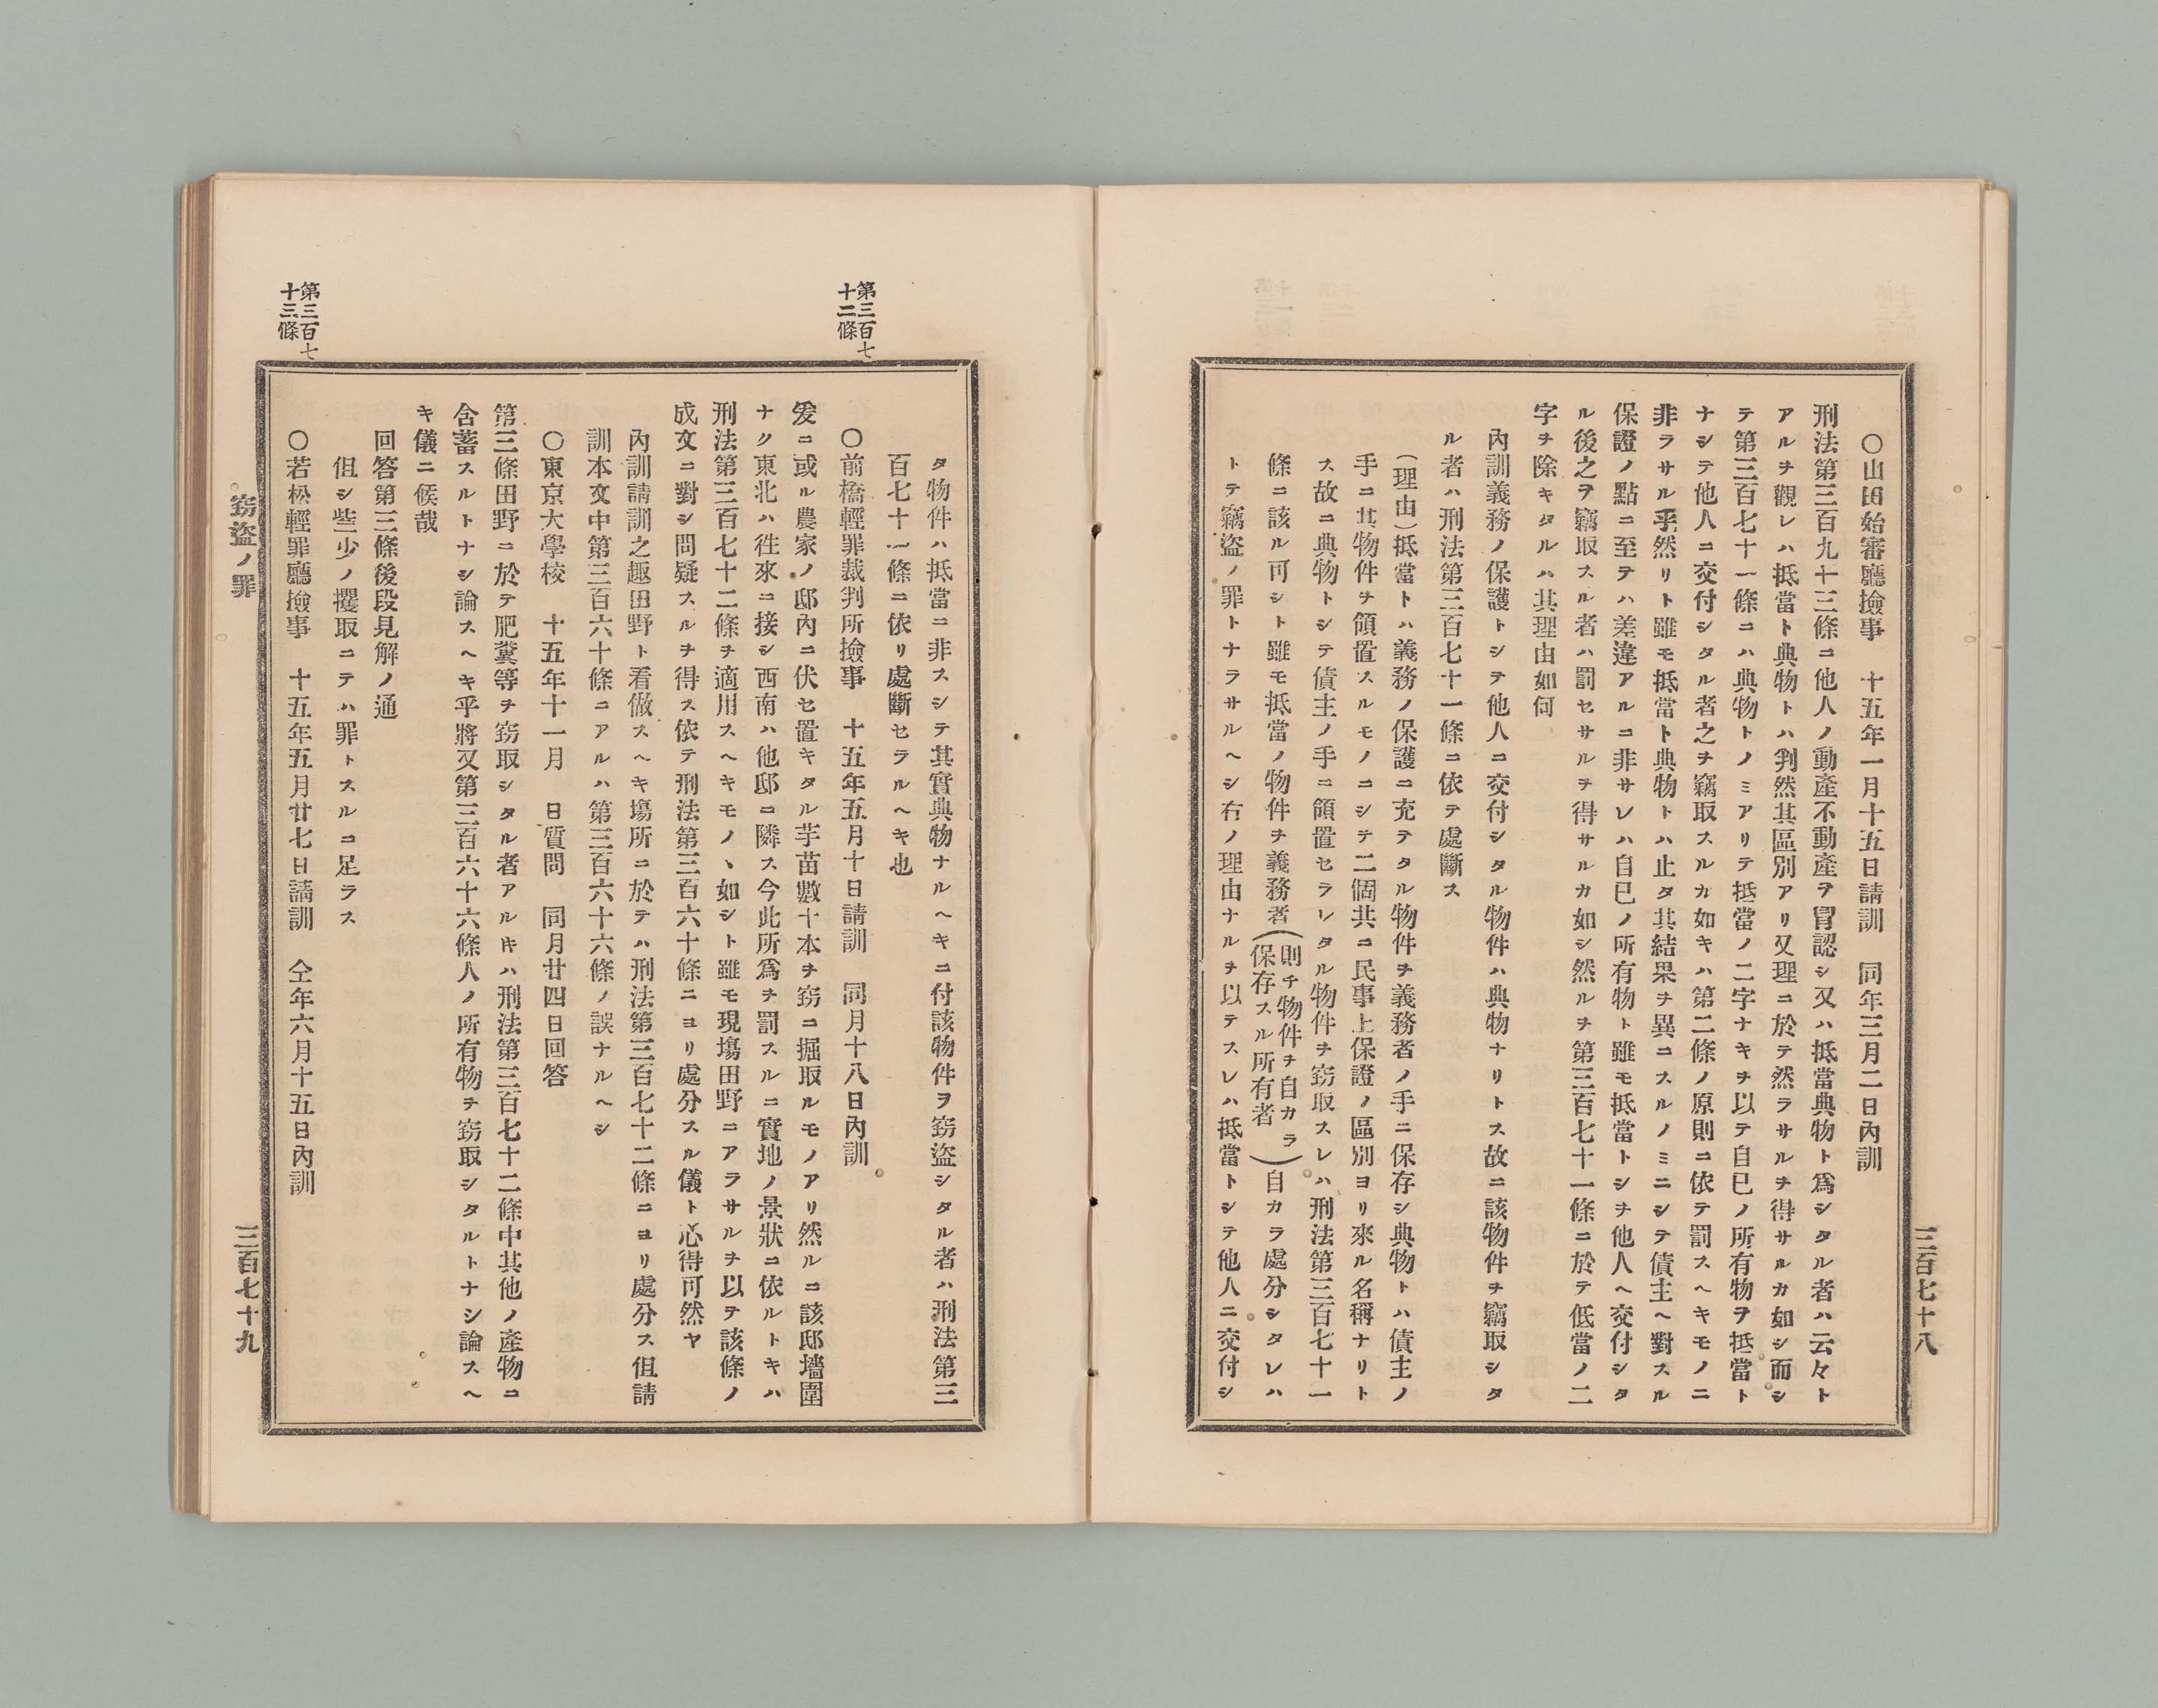 三百七十八
○山田始審廳撿事　十五年一月十五日請訓　同年三月二日內訓
刑法第三百九十三條ニ他人ノ動產不動產ヲ冒認シ又ハ抵當典物ト爲シタル者ハ云々ト
アルヲ觀レハ抵當ト典物トハ判然其區別アリ又理ニ於テ然ラサルヲ得サルカ如シ而シ
テ第三百七十一條ニハ典物トノミアリテ抵當ノ二字ナキヲ以テ自已ノ所有物ヲ抵當ト
ナシテ他人ニ交付シタル者之ヲ竊取スルカ如キハ第二條ノ原則ニ依テ罰スヘキモノニ
非ラサル乎然リト雖モ抵當ト典物トハ止タ其結果ヲ異ニスルノミニシテ債主ヘ對スル
保證ノ點ニ至テハ差違アルニ非サレハ自已ノ所有物ト雖モ抵當トシヲ他人ヘ交付シタ
ル後之ヲ竊取スル者ハ罰セサルヲ得サルカ如シ然ルヲ第三百七十一條ニ於テ低當ノ二
字ヲ除キタルハ其理由如何
內訓義務ノ保護トシテ他人ニ交付シタル物件ハ典物ナリトス故ニ該物件ヲ竊取シタ
ル者ハ刑法第三百七十一條ニ依テ處斷ス
（理由）抵當トハ義務ノ保護ニ充テタル物件ヲ義務者ノ手ニ保存シ典物トハ債主ノ
手ニ其物件ヲ領置スルモノニシテ二個共ニ民事上保證ノ區別ヨリ來ル名稱ナリト
ス故ニ典物トシテ債主ノ手ニ領置セラレタル物件ヲ窃取スレハ刑法第三百七十一
條ニ該ル可シト雖モ抵當ノ物件ヲ義務者（則チ物件ヲ自カラ保存スル所有者）自カラ處分シタレハ
トテ竊盜ノ罪トナラサルヘシ右ノ理由ナルヲ以テスレハ抵當トシテ他人ニ交付シ
タ物件ハ抵當ニ非スシテ其實典物ナルヘキニ付該物件ヲ窃盜シタル者ハ刑法第三
百七十一條ニ依リ處斷セラルヘキ也
第三百七十二條
○前橋輕罪裁判所撿事　十五年五月十日請訓　同月十八日內訓
爰ニ或ル農家ノ邸內ニ伏セ置キタル芋苗數十本ヲ窃ニ掘取ルモノアリ然ルニ該邸墻圍
ナク東北ハ徃來ニ接シ西南ハ他邸ニ隣ス今此所爲ヲ罰スルニ實地ノ景狀ニ依ルトキハ
刑法第三百七十二條ヲ適用スヘキモノヽ如シト雖モ現塲田野ニアラサルヲ以テ該條ノ
成文ニ對シ問疑スルヲ得ス依テ刑法第三百六十條ニヨリ處分スル儀ト心得可然ヤ
內訓請訓之趣田野ト看做スヘキ塲所ニ於テハ刑法第三百七十二條ニヨリ處分ス伹請
訓本文中第三百六十條ニアルハ第三百六十六條ノ誤ナルヘシ
○東京大學校　十五年十一月　日質問　同月廿四日回答
第三條田野ニ於テ肥糞等ヲ窃取シタル者アルキハ刑法第三百七十二條中其他ノ產物ニ
含蓄スルトナシ論スヘキ乎將又第三百六十六條人ノ所有物ヲ窃取シタルトナシ論スヘ
キ儀ニ候哉
回答第三條後段見解ノ通
伹シ些少ノ攫取ニテハ罪トスルニ足ラス
第三百七十三條
○若松輕罪廳撿事　十五年五月廿七日請訓　仝年六月十五日內訓
窃盜ノ罪
三百七十九